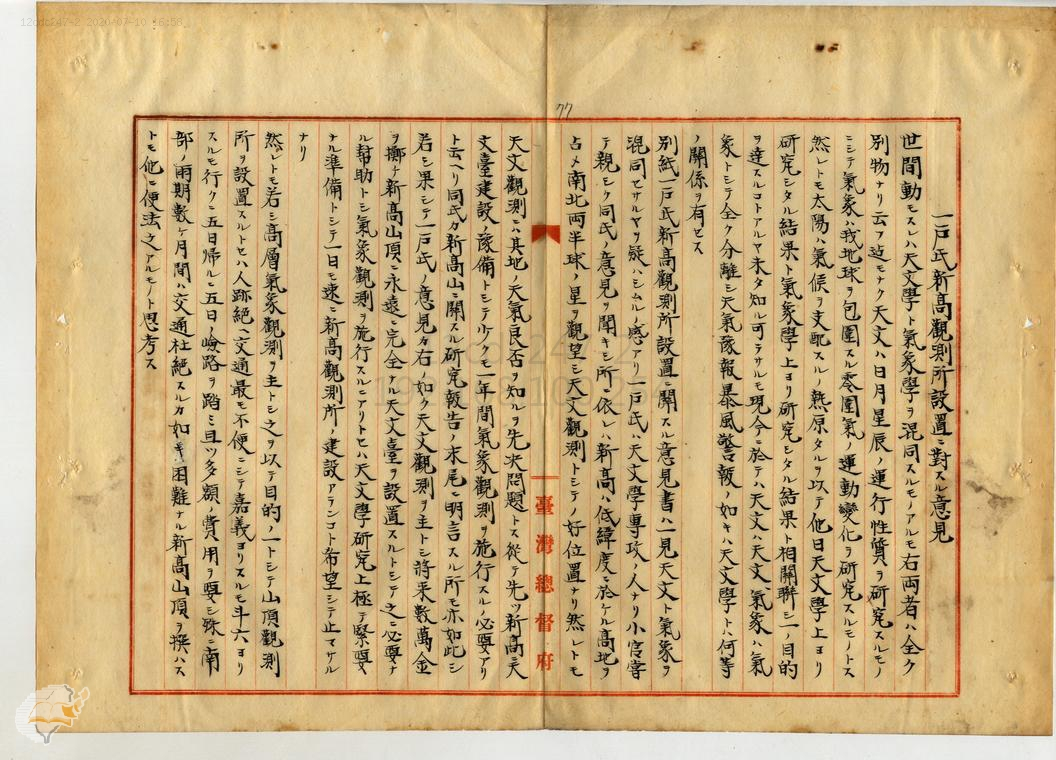 一戸氏新高観測所設置ニ對スル意見
世間動モスレハ天文學ト氣象學ヲ混同スルモノアルモ右両者ハ全ク
別物ナリ云フ迠モナク天文ハ日月星辰ノ運行性質ヲ研究スルモノ
ニシテ氣象ハ我地球ヲ包圍スル雰圍氣ノ運動變化ヲ研究スルモノトス
然レトモ太陽ハ氣候ヲ支配スルノ熱原タルヲ以テ他日天文學上ヨリ
研究シタル結果ト氣象學上ヨリ研究シタル結果ト相關聯シ一ノ目的
ヲ達スルコトアルヤ未タ知ル可ラサルモ現今ニ於テハ天文ハ天文氣象ハ氣
象トシテ全ク分離シ天氣豫報暴風警報ノ如キハ天文學トハ何等
ノ關係ヲ有セス
別紙一戸氏新高観測所設置ニ關スル意見書ハ一見天文ト氣象ヲ
混同セサルヤヲ疑ハシムルノ感アリ一戸氏ハ天文學專攻ノ人ナリ小官甞
テ親シク同氏ノ意見ヲ聞キシ所ニ依レハ新高ハ低緯度ニ於ケル高地ヲ
占メ南北両半球ノ星ヲ觀望シ天文觀測トシテノ好位置ナリ然レトモ
77
臺灣總督府
天文觀測ニハ其地ノ天氣良否ヲ知ルヲ先决問題トス從テ先ツ新高ニ天
文臺建設ノ豫備トシテ少クモ一年間氣象觀測ヲ施行スルノ必要アリ
ト云ヘリ同氏カ新高山ニ關スル研究報告ノ末尾ニ明言スル所モ亦如此シ
若シ果シテ一戸氏ノ意見カ右ノ如ク天文觀測ヲ主トシ將來數萬金
ヲ擲チ新高山頂ニ永遠ニ完全ナル天文臺ヲ設置スルトシテ之ニ必要ナ
ル幇助トシ氣象觀測ヲ施行スルニアリトセハ天文學研究上極テ緊要
ナル準備トシテ一日モ速ニ新高觀測所ノ建設アランコト希望シテ止マサル
ナリ
然レトモ若シ高層氣象觀測ヲ主トシ之ヲ以テ目的ノ一トシテ山頂觀測
所ヲ設置スルトセハ人跡絶ヘ交通最モ不便ニシテ嘉義ヨリスルモ斗六ヨリ
スルモ行クニ五日帰ルニ五日ノ嶮路ヲ踏ミ且ツ多額ノ費用ヲ要シ殊ニ南
部ノ雨期數ケ月間ハ交通杜絶スルカ如キ困難ナル新高山頂ヲ撰ハス
トモ他ニ便法之アルモノト思考ス